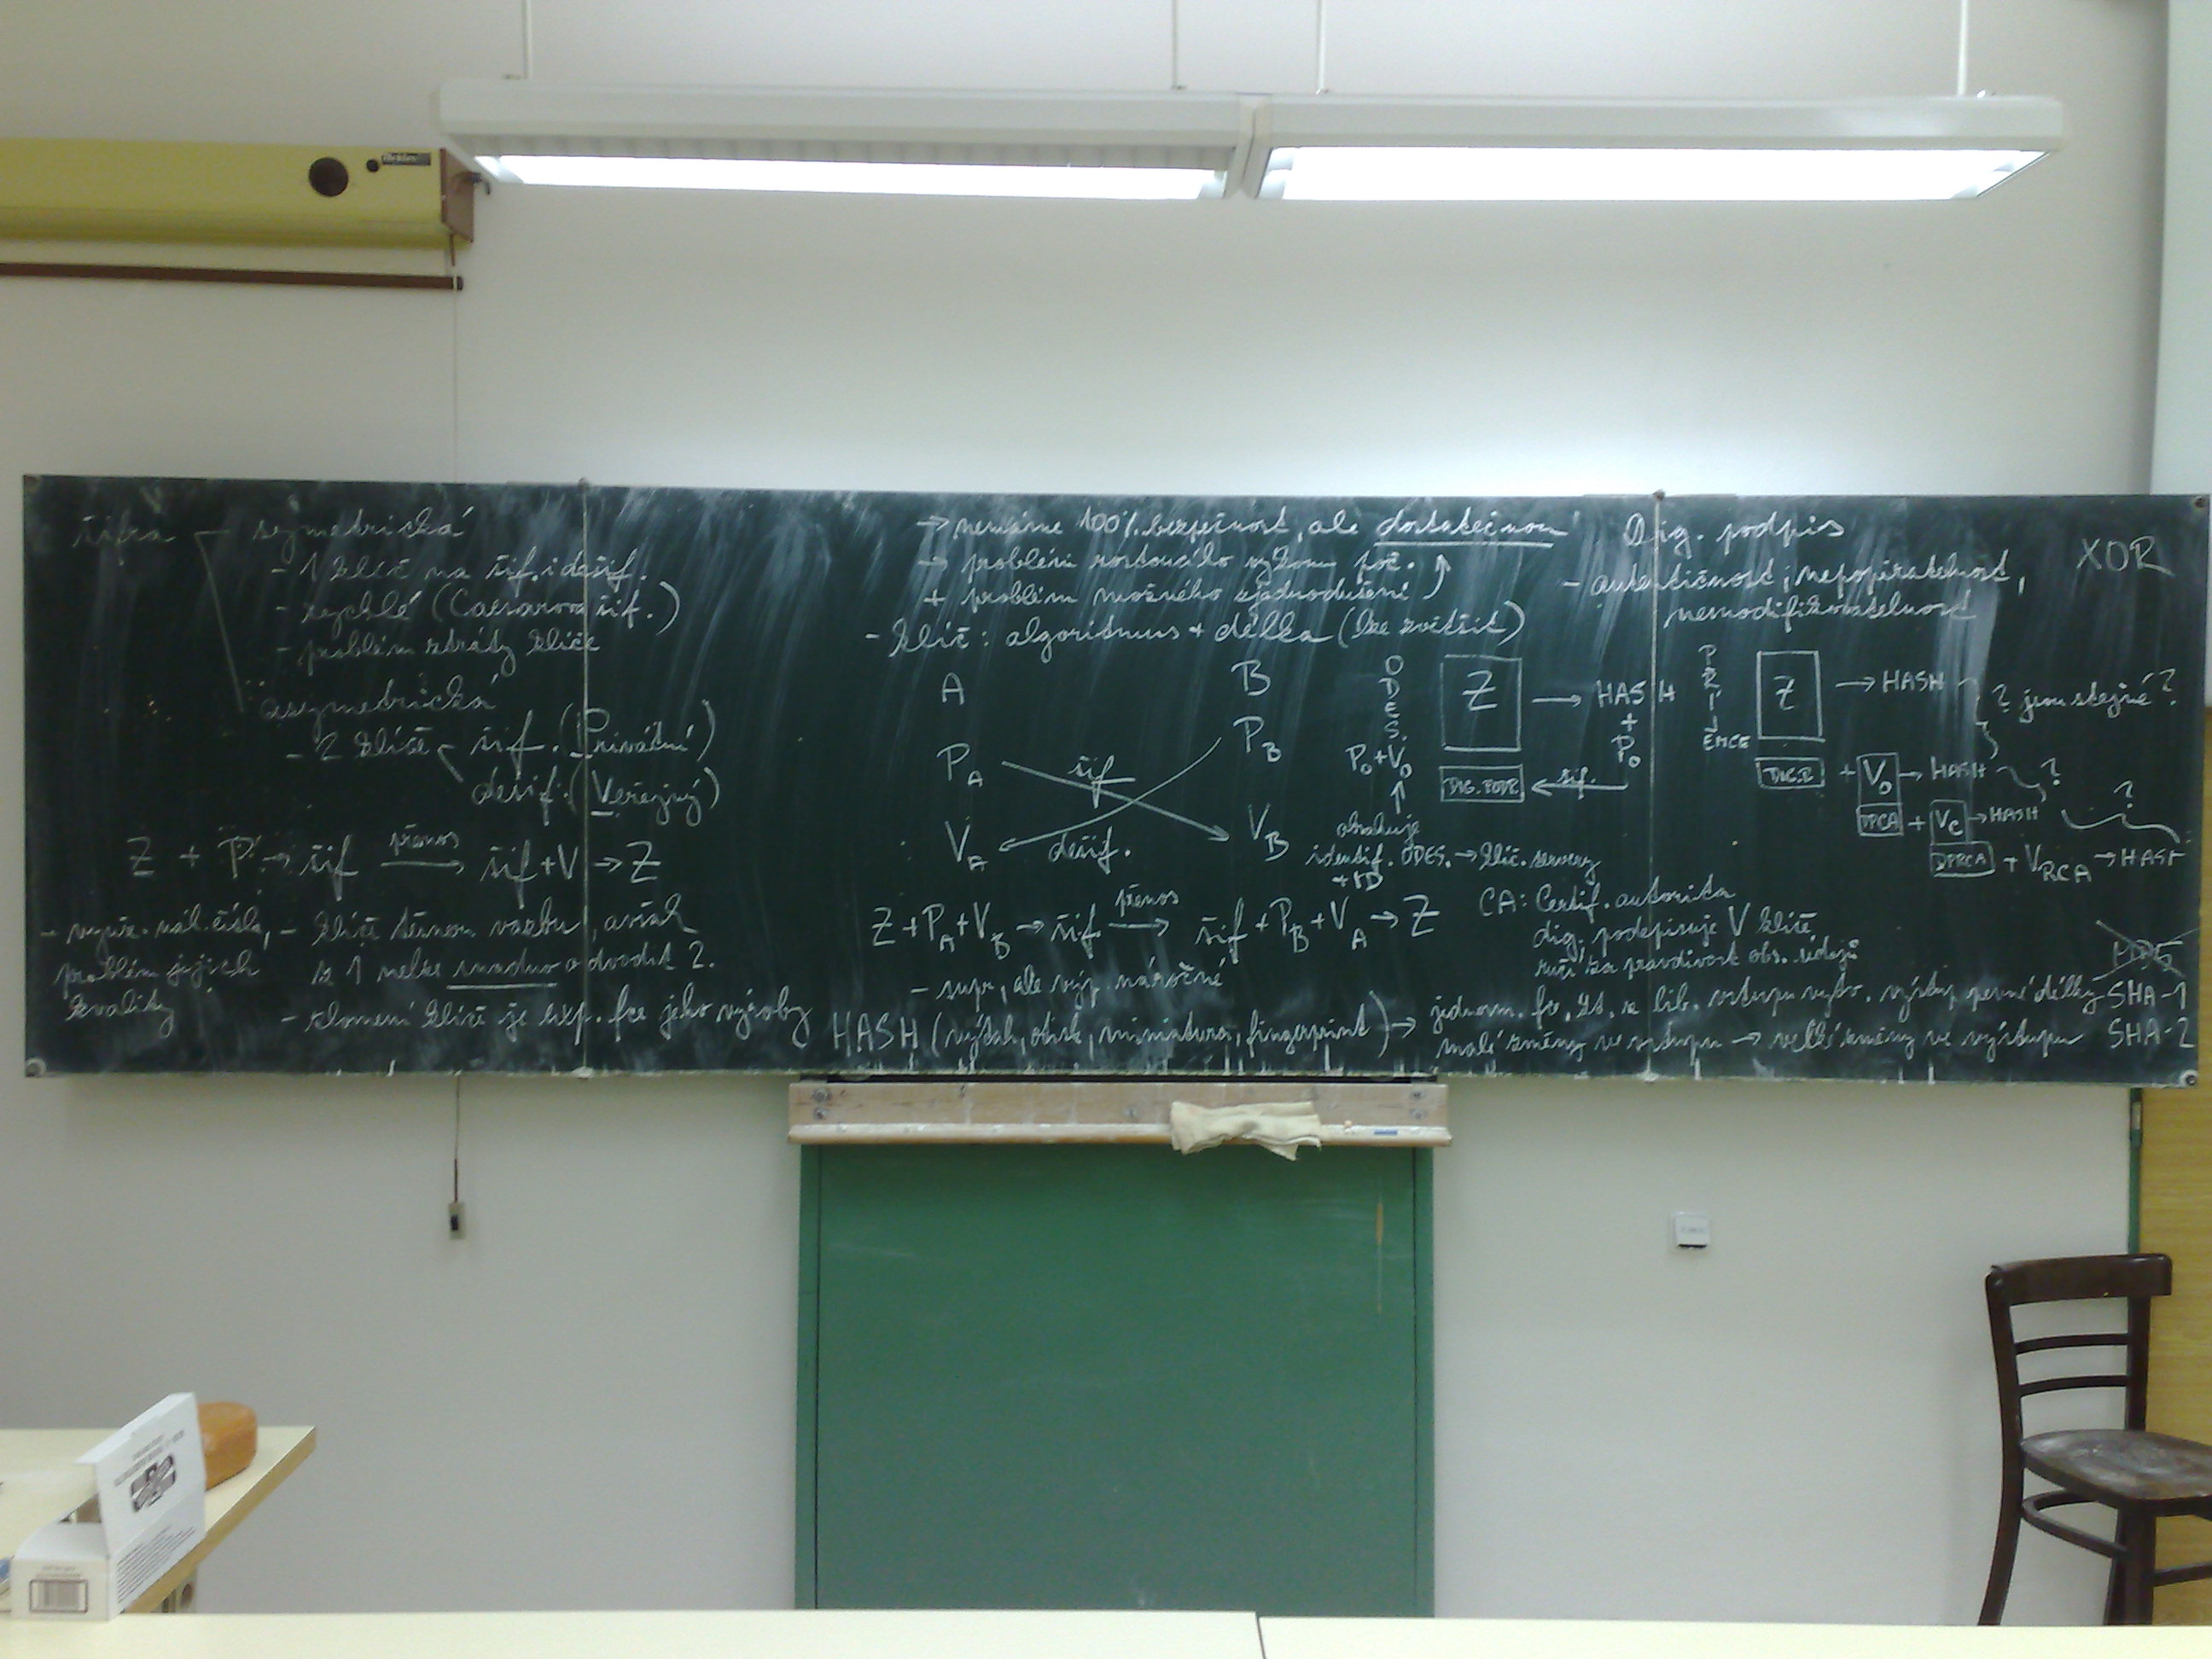 šifra
symetrická
- 1 klíč na šif. i dešif.
- rychlé (Caesarova šif.)
- problém ztráty klíče
asymetrická
- 2 klíče šif. (Privátní)
dešif. (Veřejný)
Z + P → šif přenos → šif + V → Z
- využ. náh. čísla,
problém jejich
kvality
- klíče těsnou vazbu, avšak
z 1 nelze snadno odvodit 2.
- zlomení klíče je exp. fce jeho výroby
→ nemáme 100% bezpečnost, ale dostatečnou
→ problém rostoucího výkonu poč.
+ problém možného zjednodušení
- klíč: algoritmus + délka (lze zvětšit)
A B
P_A P_B
šif
V_A V_B
dešif.
Z + P_A + V_B → šif. přenos → šif + P_B + V_A → Z
- supr, ale výp. náročné
HASH (výtah, otisk, miniatura, fingerprint) →
jednosm. fce, kt. z lib. vstupu vytv. výstup pevné délky
malé změny ve vstupu → velké změny ve výstupu
MD5
SHA-1
SHA-2
Dig. podpis
- autentičnost, nepopiratelnost,
nemodifikovatelnost
XOR
ODES.
P_O + V_O
obsahuje
identif. ODES. → klíč. servery
+ ID
Z → HASH
+
P_O
DIG. PODP. ← šif.
PŘÍJEMCE
Z → HASH
? jsou stejné?
DIG.P. + V_O → HASH ?
DPCA + V_C → HASH ?
DPRCA + V_RCA → HASH
CA: Certif. autorita
dig. podepisuje V klíče
ručí za pravdivost obs. údajů